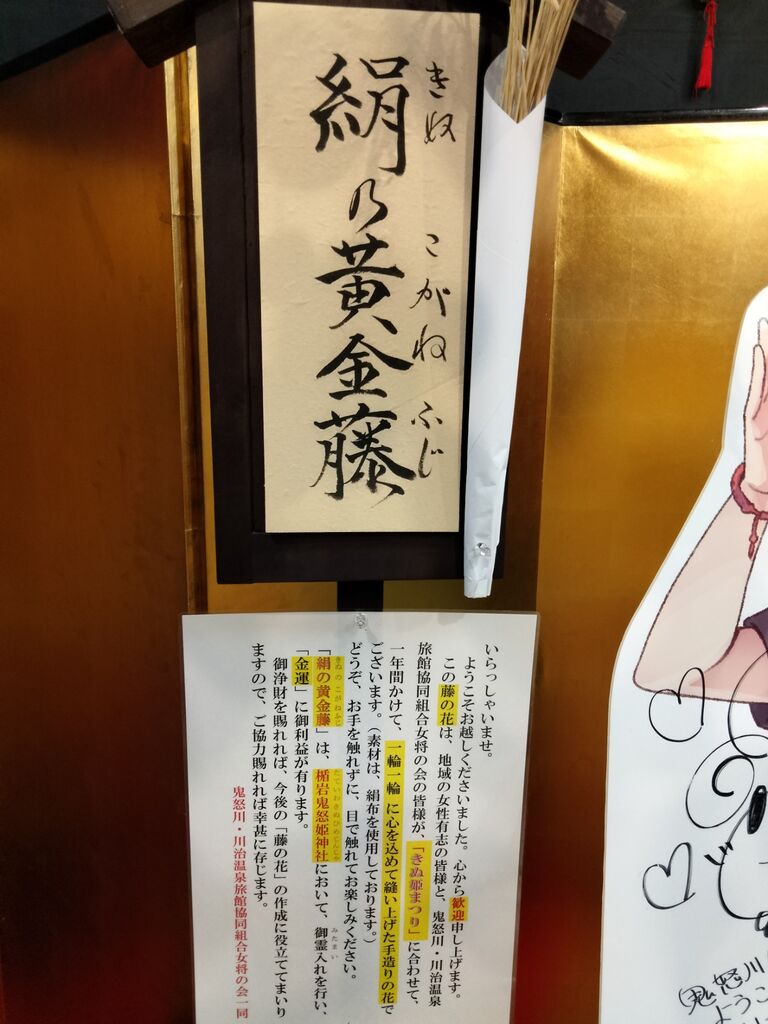 絹乃黄金藤
きぬ こがね ふじ
いらっしゃいませ。
ようこそお越しくださいました。心から歓迎申し上げます。
この藤の花は、地域の女性有志の皆様と、鬼怒川・川治温泉
旅館協同組合女将の会の皆様が、「きぬ姫まつり」に合わせて、
一年間かけて、一輪一輪に心を込めて縫い上げた手造りの花で
ございます。（素材は、絹布を使用しております。）
どうぞ、お手を触れずに、目で触れてお楽しみください。
「絹の黄金藤」は、楯岩鬼怒姫神社において、御霊入れを行い、
きぬ の こがねふじ
たていわきぬひめじんじゃ
みたまい
「金運」に御利益が有ります。
御浄財を賜れれば、今後の「藤の花」の作成に役立ててまいり
ますので、ご協力賜れれば幸甚に存じます。
鬼怒川・川治温泉旅館協同組合女将の会一同
鬼怒川
ようこ